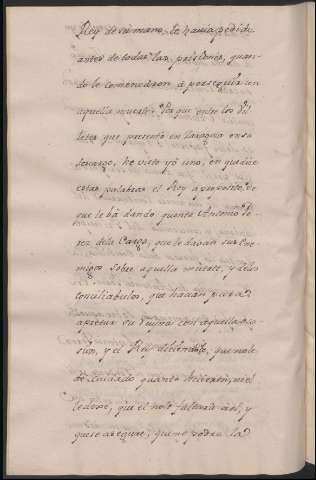 Rey de su mano, le havia pedido
antes de todas las prisiones, quan-
do le comenzaron á perseguir en
aquella muerte. Ya que entre los Vil-
letes que presentó en Zaragoza en su
descargo, he visto yo uno, en que dice
estas palabras el Rey á proposito, de
que le bá dando quenta Antonio Pe-
rez de la Carga, que le daban sus Ene-
migos sobre aquella muerte, y de los
conciliabulos, que hacian para
apretar su ruina con aquella oca-
sion, y el Rey diciendole, que no le
dé cuidado quanto hicieren, ni el
dexase, que él no le faltará á él, y
que se asegure, que no podrá la